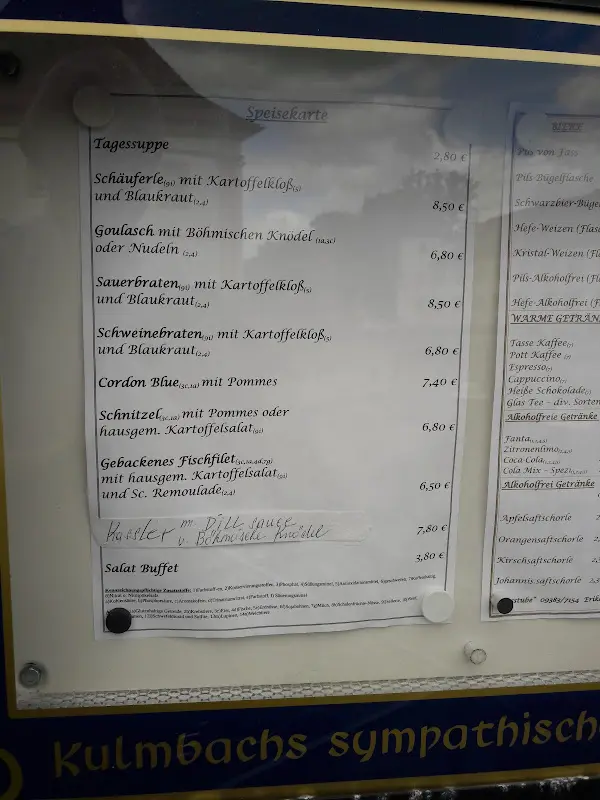 Speisekarte
Tagessuppe
2,80 €
Schäuferle(9i) mit Kartoffelkloß(5)
und Blaukraut(2,4)
8,50 €
Goulasch mit Böhmischen Knödel (1a,3c)
oder Nudeln (2,4)
6,80 €
Sauerbraten(9i) mit Kartoffelkloß(5)
und Blaukraut(2,4)
8,50 €
Schweinebraten(9i) mit Kartoffelkloß(5)
und Blaukraut(2,4)
6,80 €
Cordon Blue(3c,1a) mit Pommes
7,40 €
Schnitzel(3c,1a) mit Pommes oder
hausgem. Kartoffelsalat(9i)
6,80 €
Gebackenes Fischfilet(3c,1a,4d,7g)
mit hausgem. Kartoffelsalat(9i)
und Sc. Remoulade(2,4)
6,50 €
m. Dill sauce
v. Böhmische Knödel
7,80 €
Salat Buffet
3,80 €
BIERE
von Fass
Pils Bügelflasche
Schwarzbier-Büge
Hefe-Weizen (Flas
Kristal-Weizen (Fl
Pils-Alkoholfrei (F
Hefe-Alkoholfrei (
WARME GETRÄN
Tasse Kaffee(7)
Pott Kaffee (7)
Espresso(7)
Cappuccino(7)
Heiße Schokolade(7)
Glas Tee – div. Sorten
Alkoholfreie Getränke
Fanta
Zitronenlimo
Coca-Cola
Cola Mix – Spezi
Alkoholfrei Getränke
Apfelsaftschorle 2
Orangensaftschorle 2,
Kirschsaftschorle 2,5
Johannis.saftschorle 2,5
stube" 09383/7154 Erik
Kulmbachs sympathische